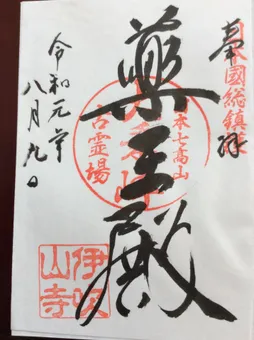 奉拝
日本國総鎮護
日本七高山
薬王殿
古霊場
令和元年
八月九日
伊吹山寺